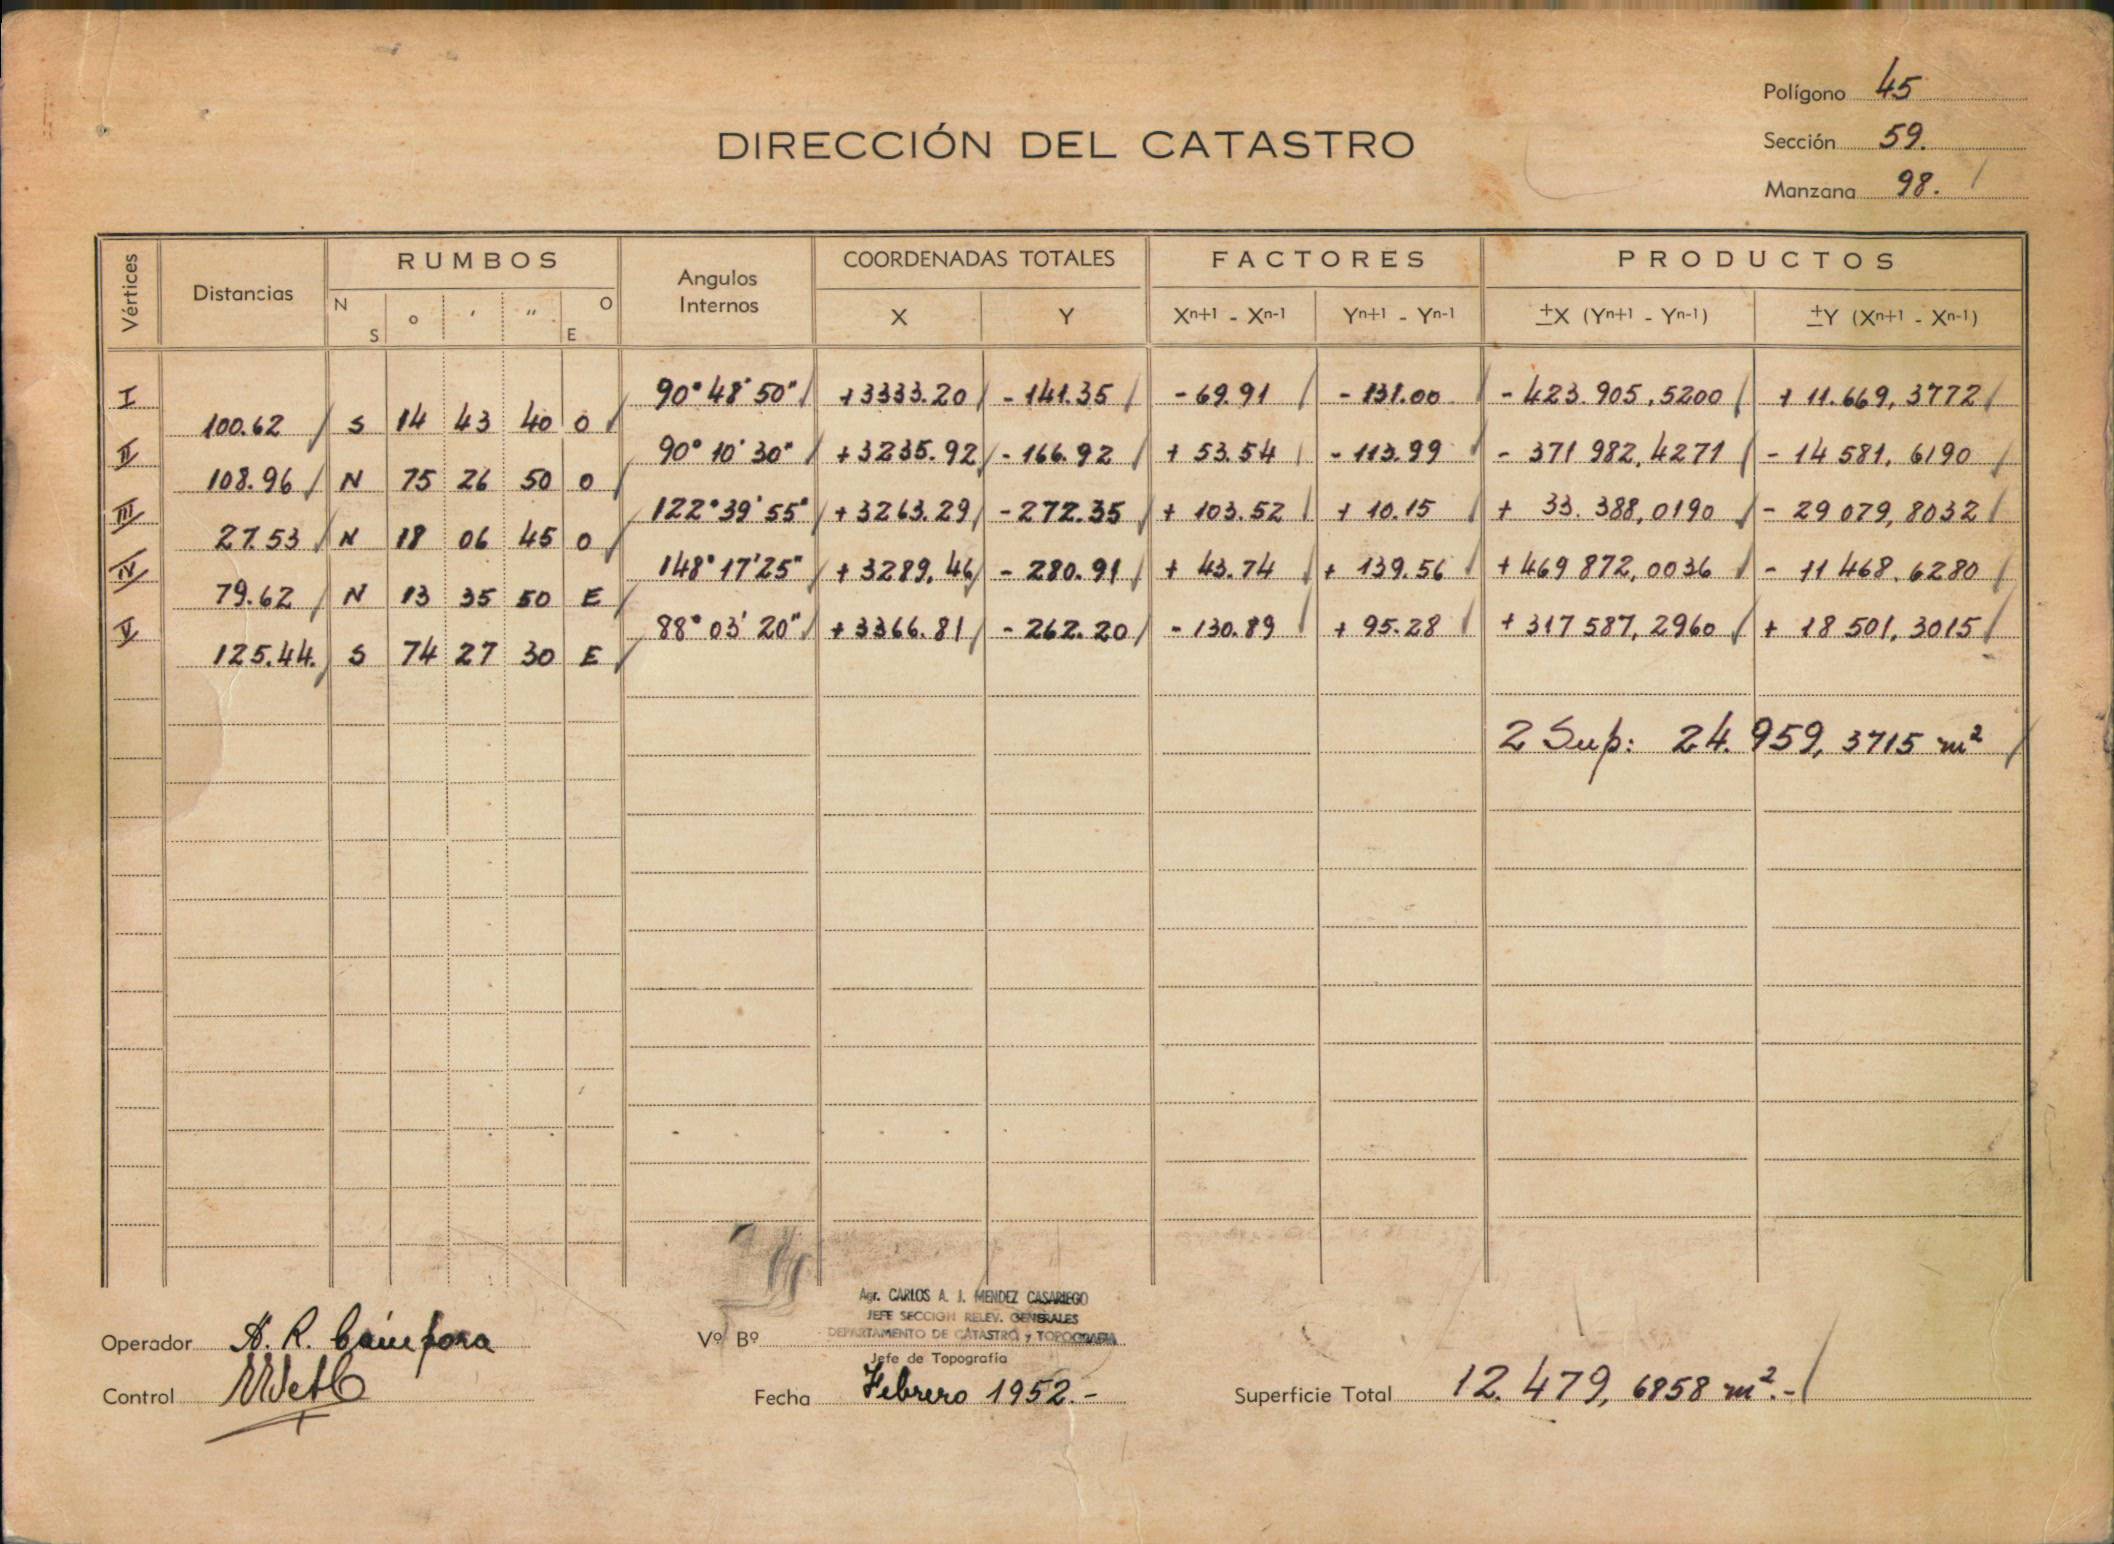 Polígono 45
DIRECCIÓN DEL CATASTRO
Sección 59.
Manzana 98.
Vértices Distancias RUMBOS Angulos Internos COORDENADAS TOTALES FACTORES PRODUCTOS
N S ° ' " O E X Y Xn+1 - Xn-1 Yn+1 - Yn-1 ±X (Yn+1 - Yn-1) ±Y (Xn+1 - Xn-1)
I 90° 48' 50" +3333.20 - 141.35 - 69.91 - 131.00 - 423.905,5200 + 11.669,3772
100.62 S 14 43 40 O
II 90° 10' 30" +3235.92 - 166.92 + 53.54 - 113.99 - 371 982,4271 - 14 581,6190
108.96 N 75 26 50 O
III 122° 39' 55" +3263.29 - 272.35 + 103.52 + 10.15 + 33.388,0190 - 29 079,8032
27.53 N 18 06 45 O
IV 148° 17' 25" + 3289.46 - 280.91 + 43.74 + 139.56 + 469 872,0036 - 11 468.6280
79.62 N 13 35 50 E
V 88° 03' 20" +3366.81 - 262.20 - 130.89 + 95.28 + 317 587,2960 + 18 501,3015
125.44. S 74 27 30 E
2 Sup: 24.959,3715 m²
Agr. CARLOS A. J. MENDEZ CASARIEGO
JEFE SECCION RELEV. GENERALES
DEPARTAMENTO DE CATASTRO y TOPOGRAFIA
Operador A. R. Cámpora Vº Bº
Jefe de Topografía
Control Fecha Febrero 1952.- Superficie Total 12.479,6858 m².-